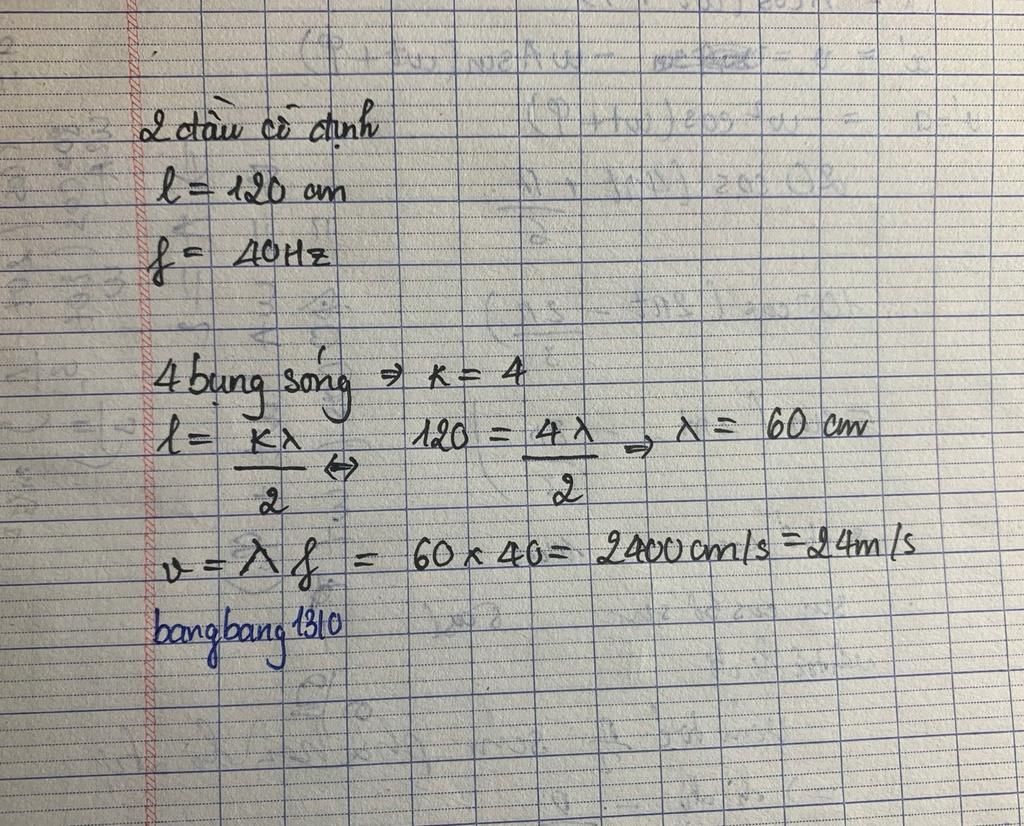 2 đầu cố định
l = 120 cm
f = 40Hz
4 bụng sóng ⇒ K = 4
l = Kλ/2 ⇔ 120 = 4λ/2 ⇒ λ = 60 cm
v = λ f = 60 x 40 = 2400 cm/s = 24m/s
bangbang1310